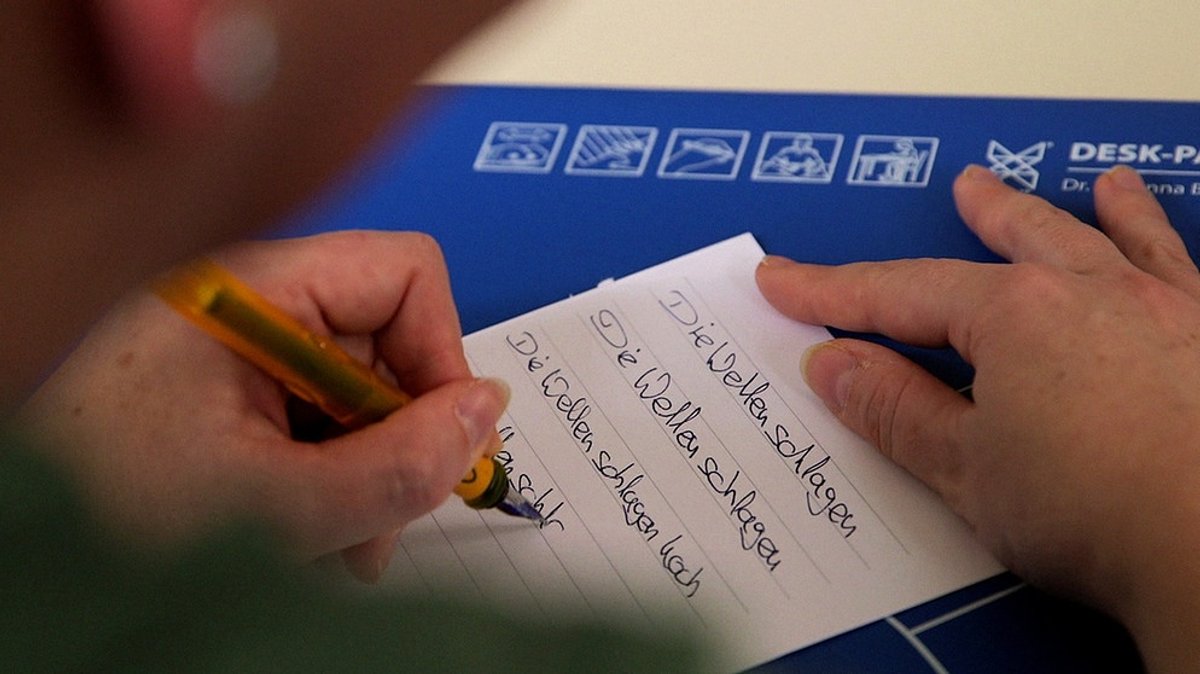 DESK-PA
Dr. nna B
Die Wellen schlagen
Die Wellen schlagen
Die Wellen schlagen hoch
llen schl